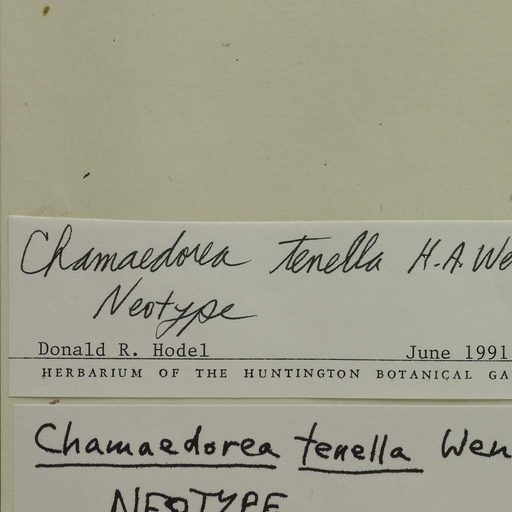 Chamaedorea tenella H.A. We
Neotype
Donald R. Hodel June 1991
HERBARIUM OF THE HUNTINGTON BOTANICAL GA
Chamaedorea tenella Wen
NEOTYPE